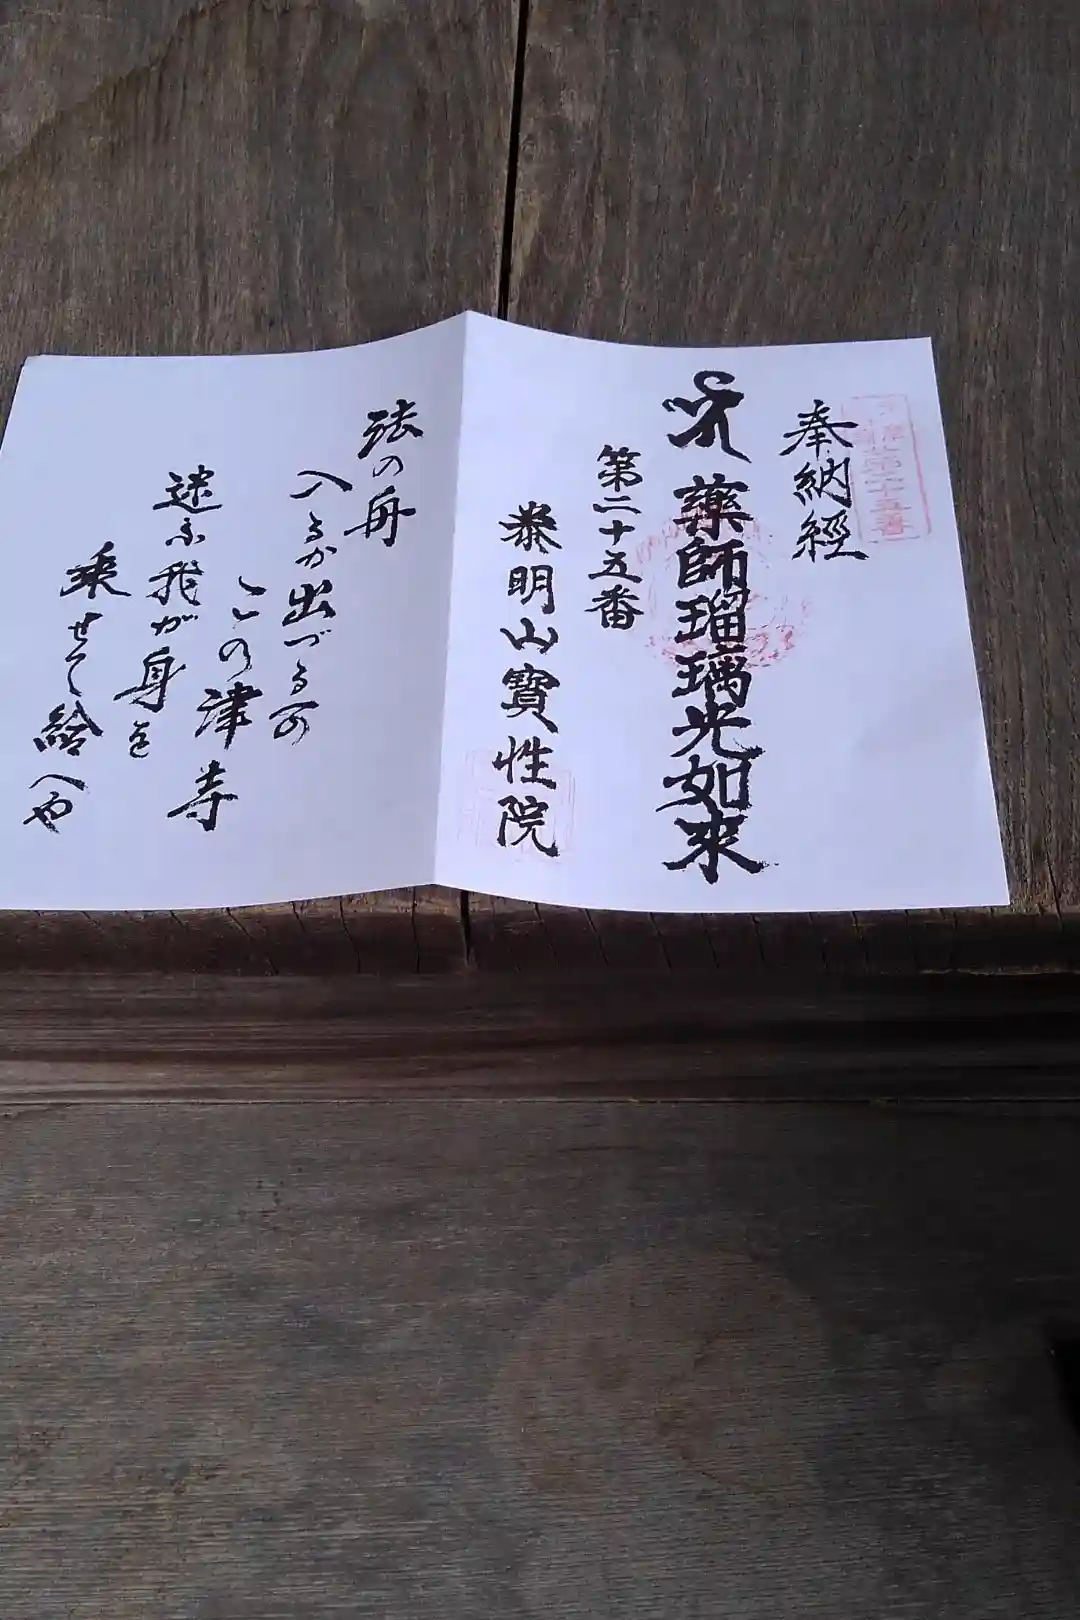 奉納經
藥師瑠璃光如來
第二十五番
泰明山寶性院
法の舟
入るか出づるか
この津寺
迷ふ我が身を
乗せて給へや